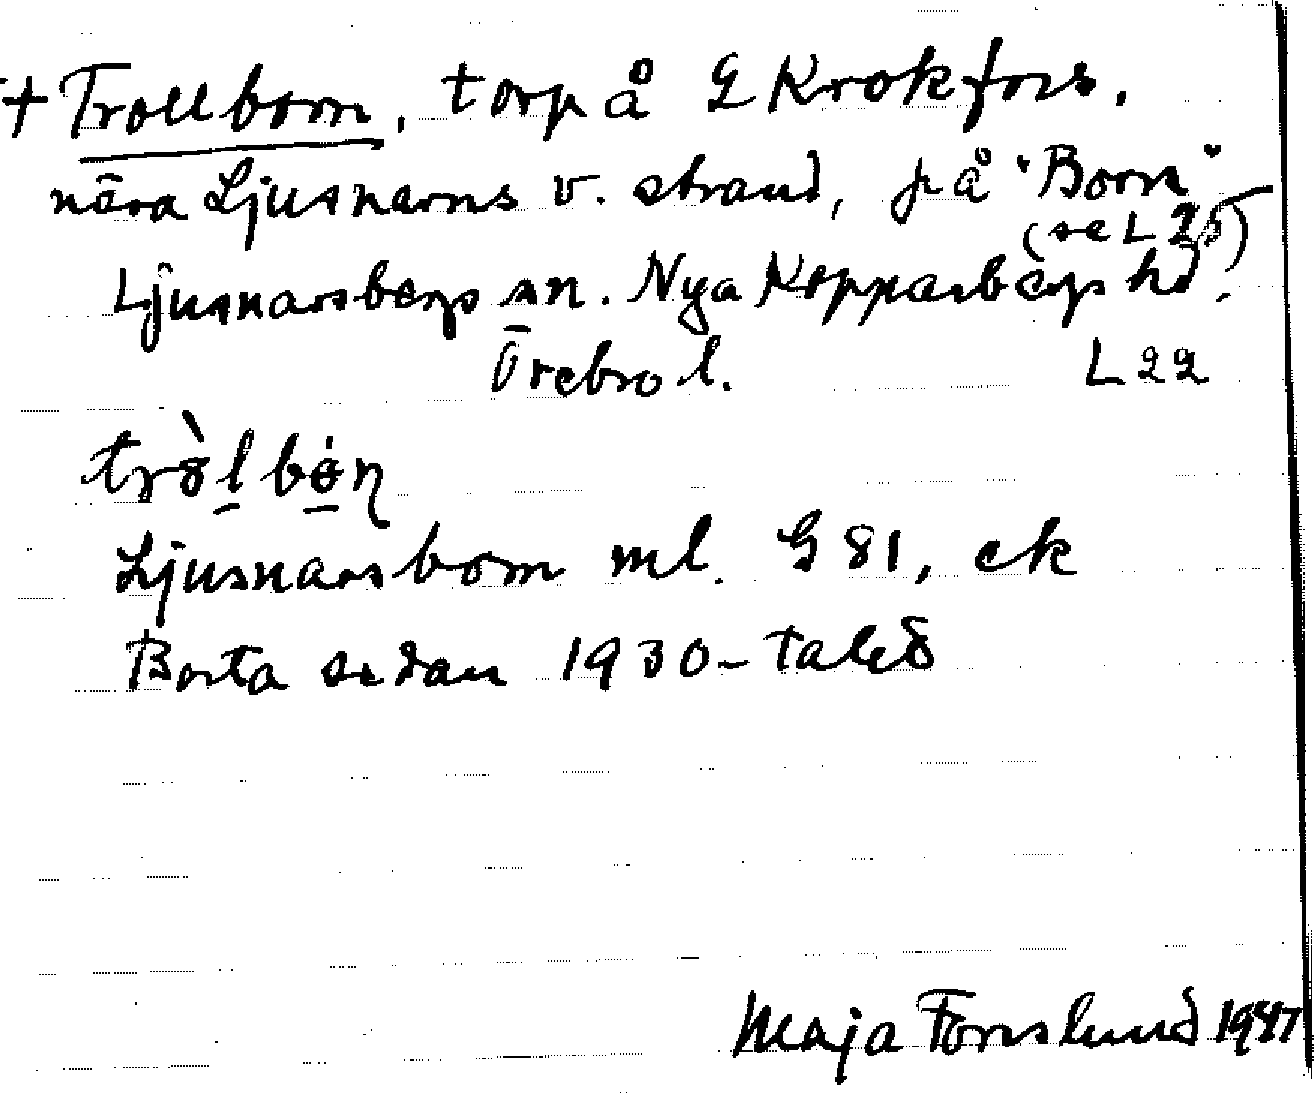 + Trollborn, torp å L Krokfors.
nära Ljusnarns v. strand, på "Born"
(se L 25)
Ljusnarsbergs sn. Nya Kopparbergs hd.
Örebro l. L 22
Ljusnarsborn ml. G 81, ek
Borta sedan 1930-talet
Maja Forslund 1947